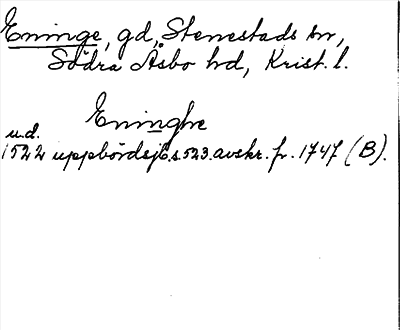 Eninge, gd, Stenestads sn,
Södra Åsbo hd, Krist. l.
Eninghe
u.d.
1522 uppbördsj E.s. 523. avskr. fr. 1747 (B).